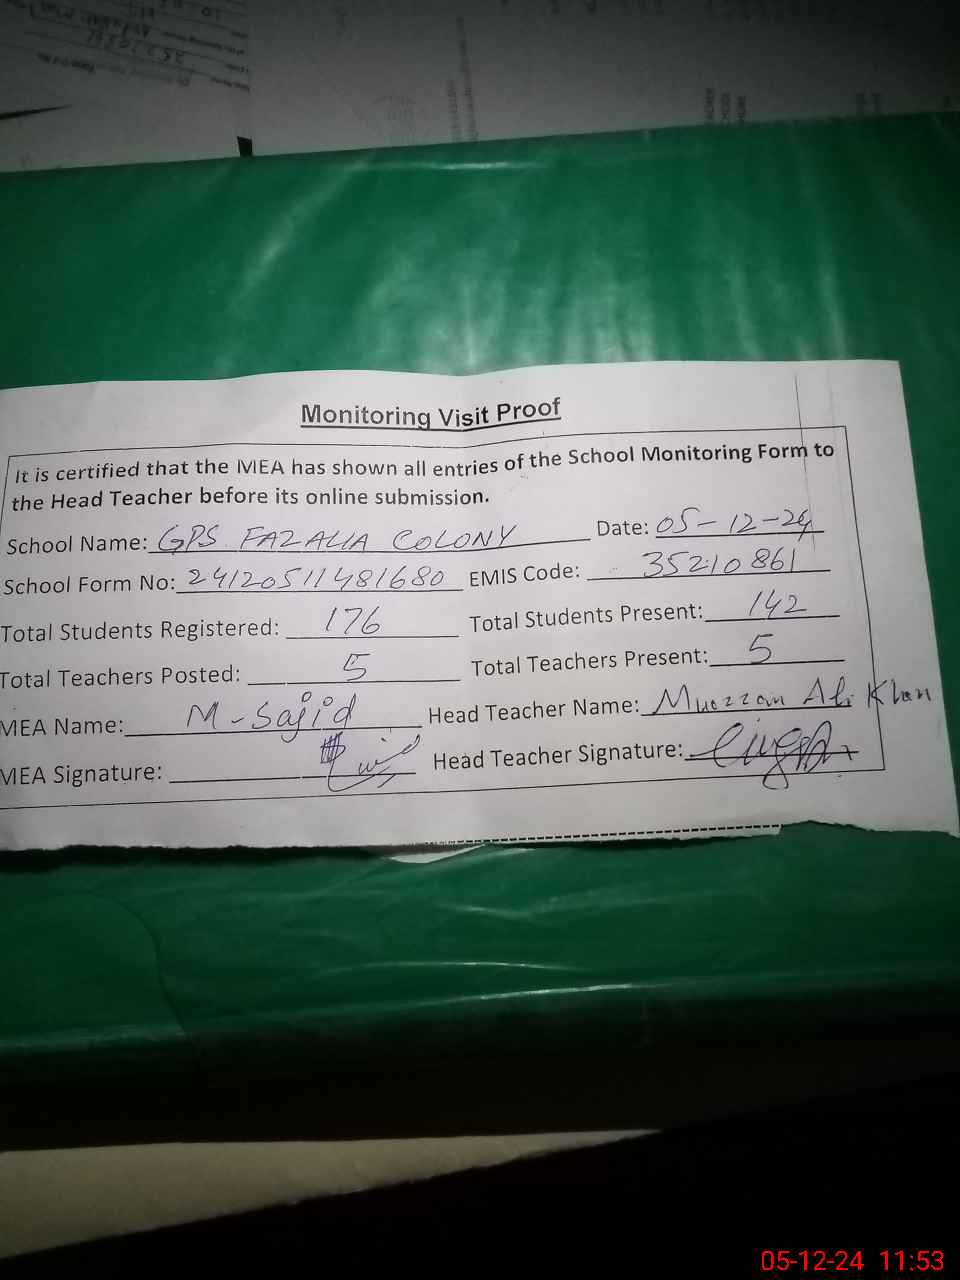 Monitoring Visit Proof
It is certified that the MEA has shown all entries of the School Monitoring Form to
the Head Teacher before its online submission.
School Name: GPS FAZALIA COLONY Date: 05-12-24
School Form No: 24120511481680 EMIS Code: 35210861
Total Students Registered: 176 Total Students Present: 142
Total Teachers Posted: 5 Total Teachers Present: 5
MEA Name: M-Sajid Head Teacher Name: Muazzam Ali Khan
MEA Signature: Head Teacher Signature:
05-12-24 11:53